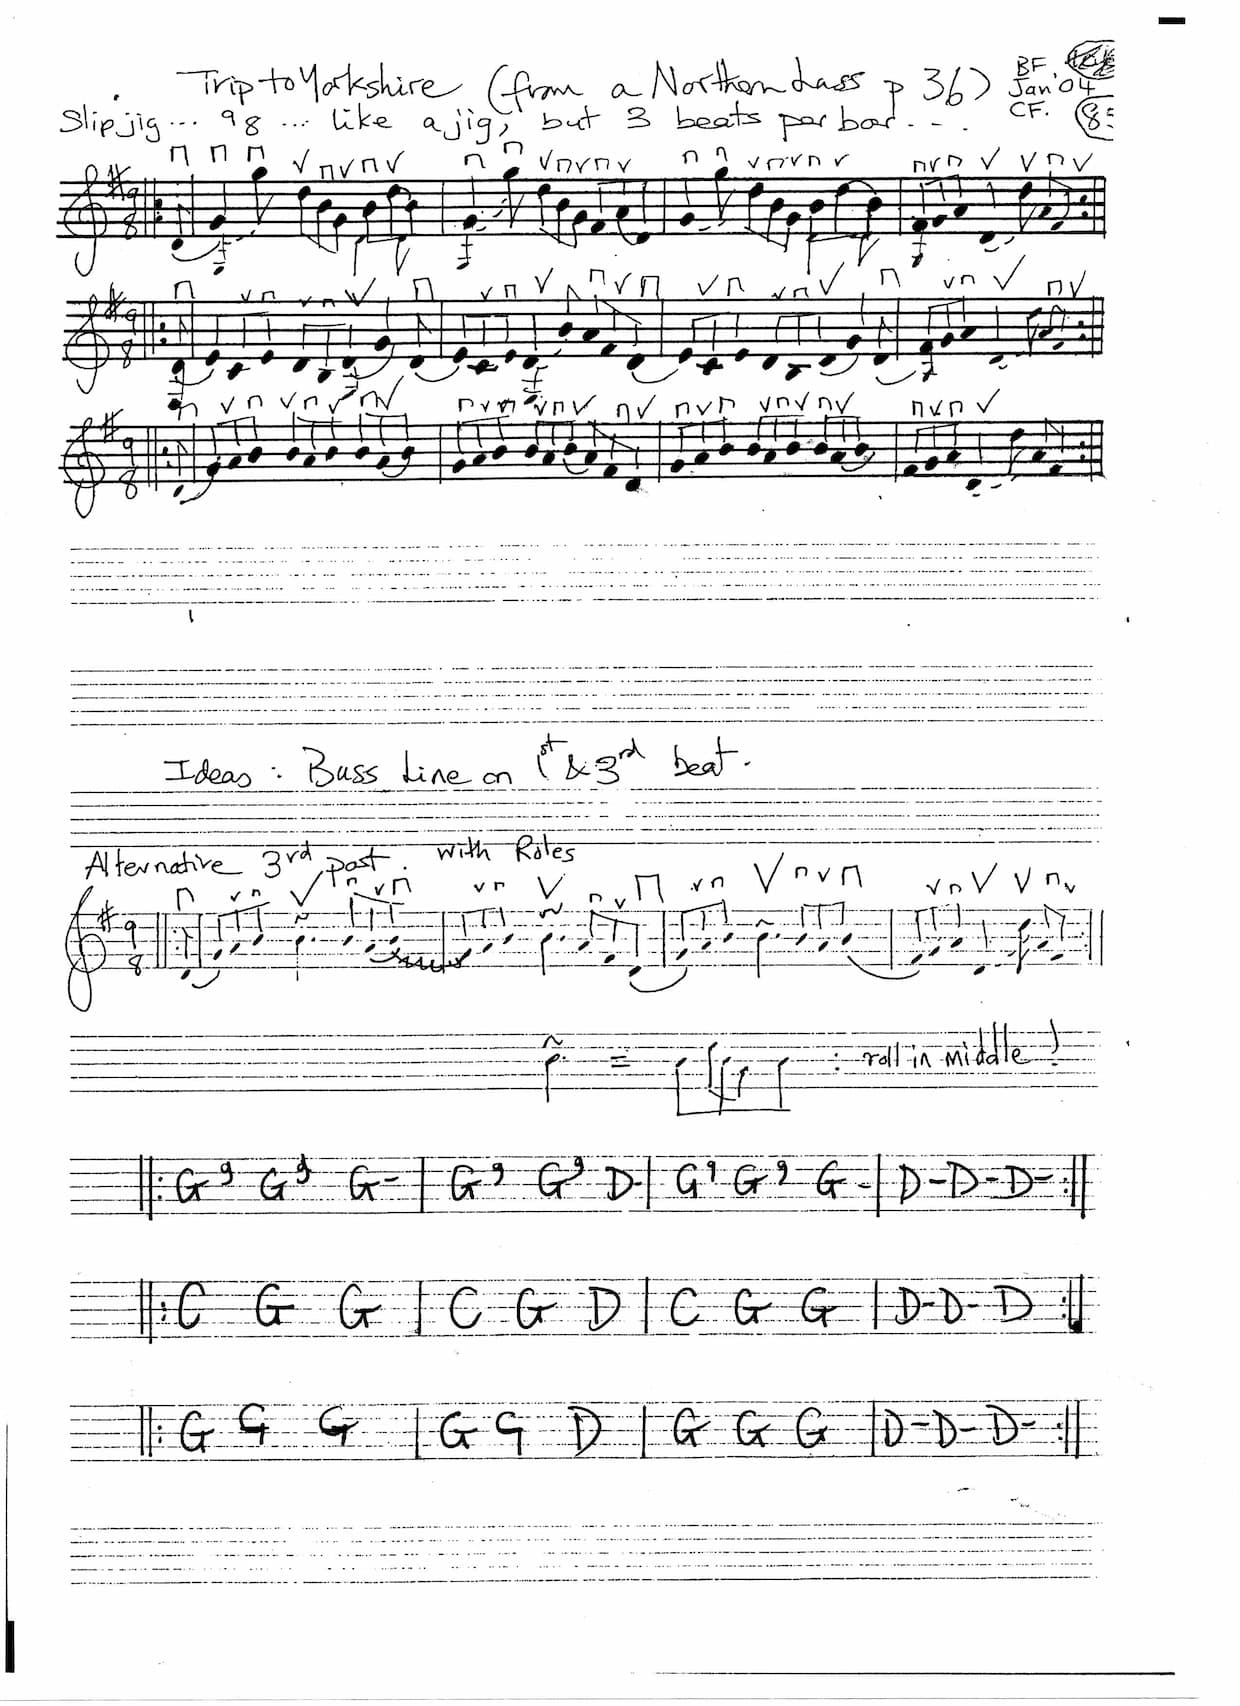 Trip to Yorkshire (from a Northern Lass p 36)
BF
Jan '04
CF.
85
Slip jig... 98 ... like a jig, but 3 beats per bar...
9
8
9
8
9
8
Ideas : Bass Line on 1st & 3rd beat.
Alternative 3rd part. with Roles
9
8
= : roll in middle!
G9 G9 G- | G9 G9 D- | G9 G9 G- | D-D-D-
C G G | C G D | C G G | D-D-D
G G G | G G D | G G G | D-D-D-